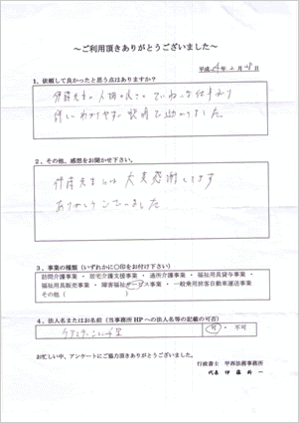 ～ご利用頂きありがとうございました～
平成24年2月28日
1、依頼して良かったと思う点はありますか？
伊藤先生の人柄の良さ、ていねいな仕事ぶり
2、その他、感想をお聞かせ下さい。
伊藤先生には大変感謝しています
ありがとうございました
3、事業の種類（いずれかに〇印をお付け下さい）
訪問介護事業・居宅介護支援事業・通所介護事業・福祉用具貸与事業・
福祉用具販売事業・障害福祉サービス事業・一般乗用旅客自動車運送事業
その他（　　　）
4、法人名またはお名前（当事務所HPへの法人名等の記載の可否）
可・不可
お忙しい中、アンケートにご協力頂きありがとうございました。
行政書士 甲西法務事務所
代表 伊藤